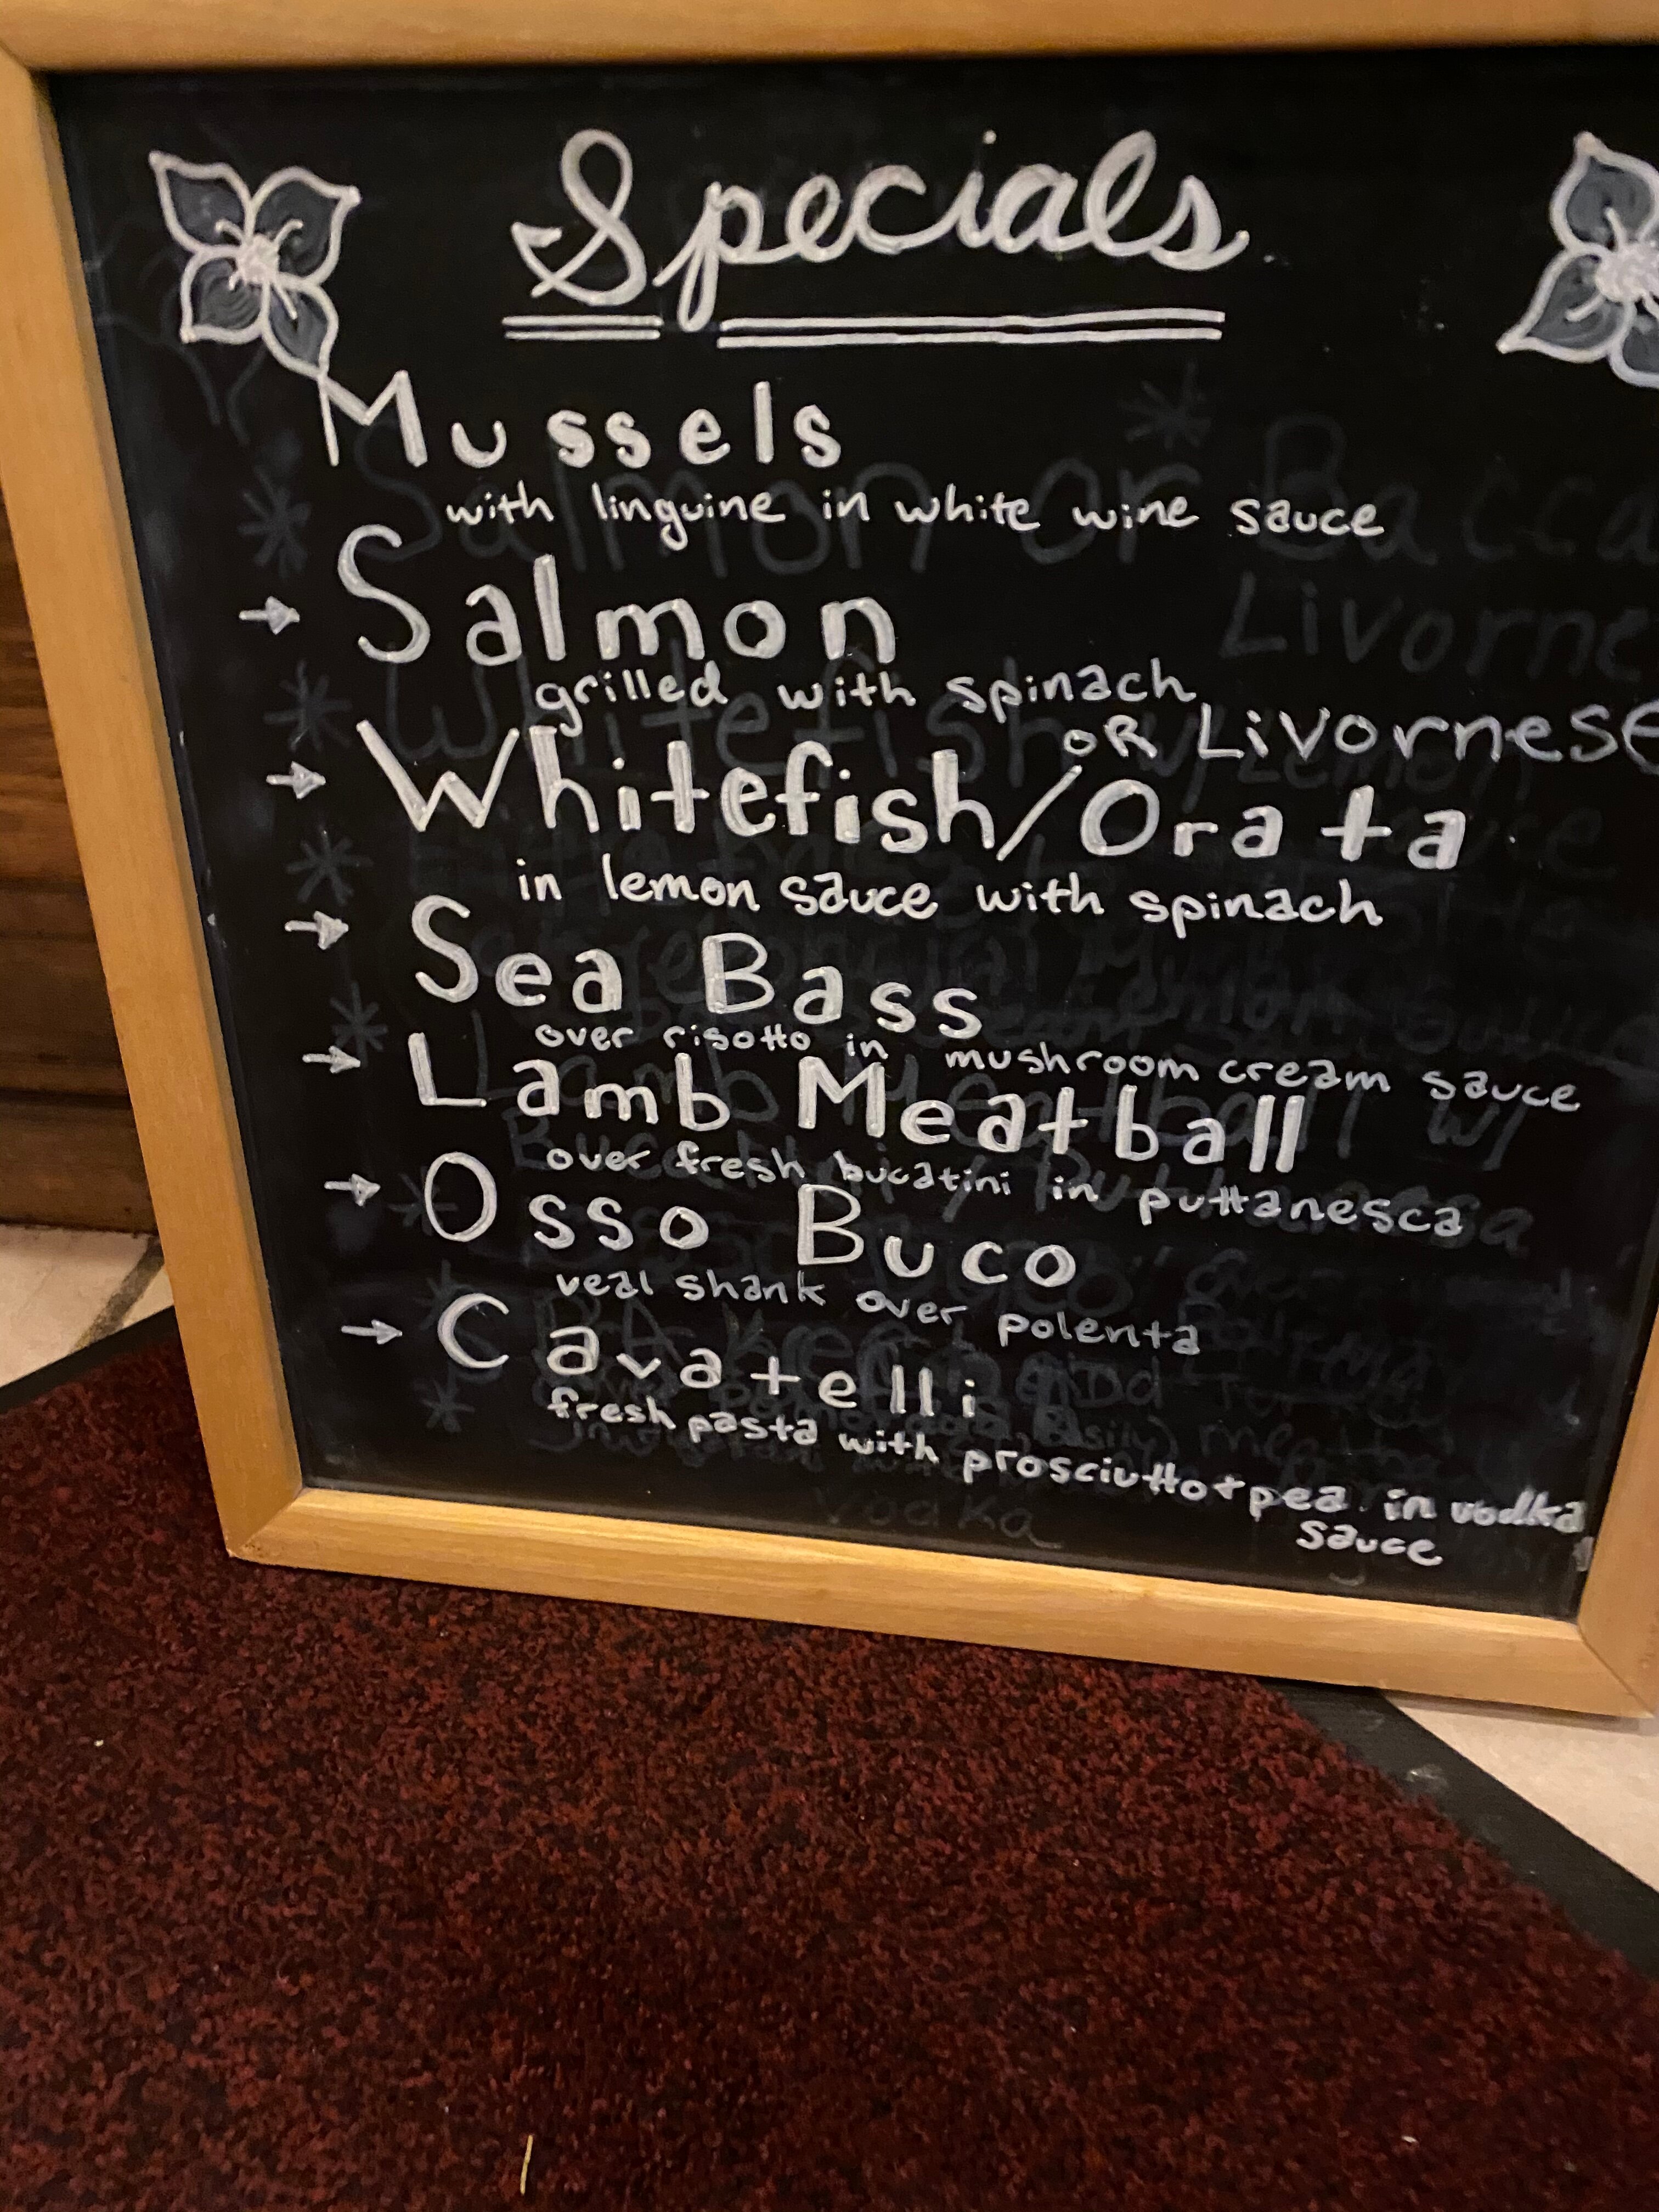 Specials
Mussels
with linguine in white wine sauce
→ Salmon
grilled with spinach
OR Livornese
→ Whitefish/Orata
in lemon sauce with spinach
→ Sea Bass
over risotto in mushroom cream sauce
→ Lamb Meatball
over fresh bucatini in puttanesca
→ Osso Buco
veal shank over polenta
→ Cavatelli
fresh pasta with prosciutto + pea in vodka
sauce